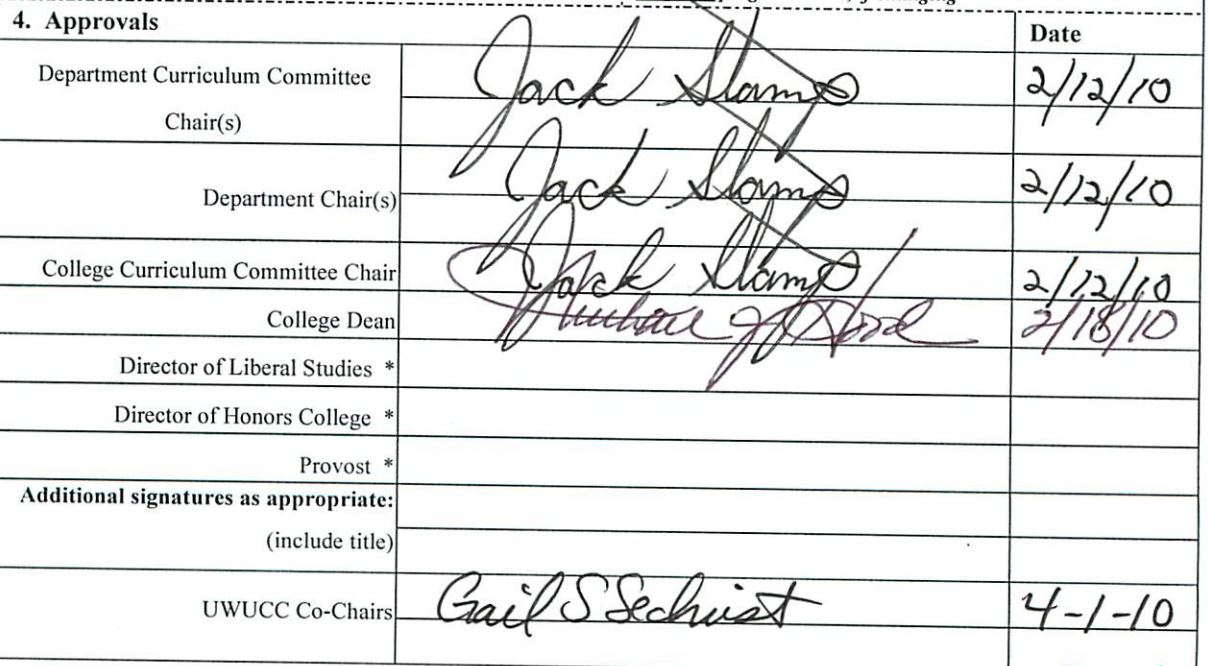 4. Approvals Date
Department Curriculum Committee Chair(s) Jack Stamp 2/12/10
Department Chair(s) Jack Stamp 2/12/10
College Curriculum Committee Chair Jack Stamp 2/12/10
College Dean Michael J Hood 2/18/10
Director of Liberal Studies *
Director of Honors College *
Provost *
Additional signatures as appropriate:
(include title)
UWUCC Co-Chairs Gail S Sechrist 4-1-10